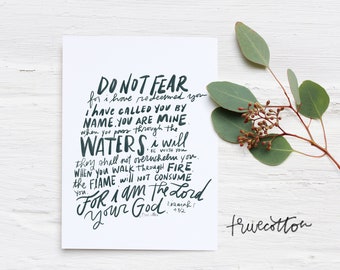 DO NOT FEAR
for i have redeemed you
I HAVE CALLED YOU BY
NAME. YOU ARE MINE.
when you pass through the
WATERS, i will
be with you
they shall not overwhelm you.
WHEN YOU WALK THROUGH FIRE,
the FLAME will NOT CONSUME
you.
FOR i AM the Lord
your GOD
isaiah
truecotton